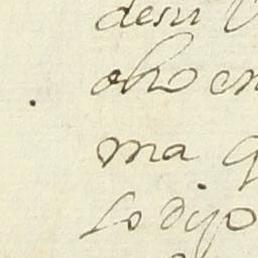 desu
otro en
ma q
Lo dijo